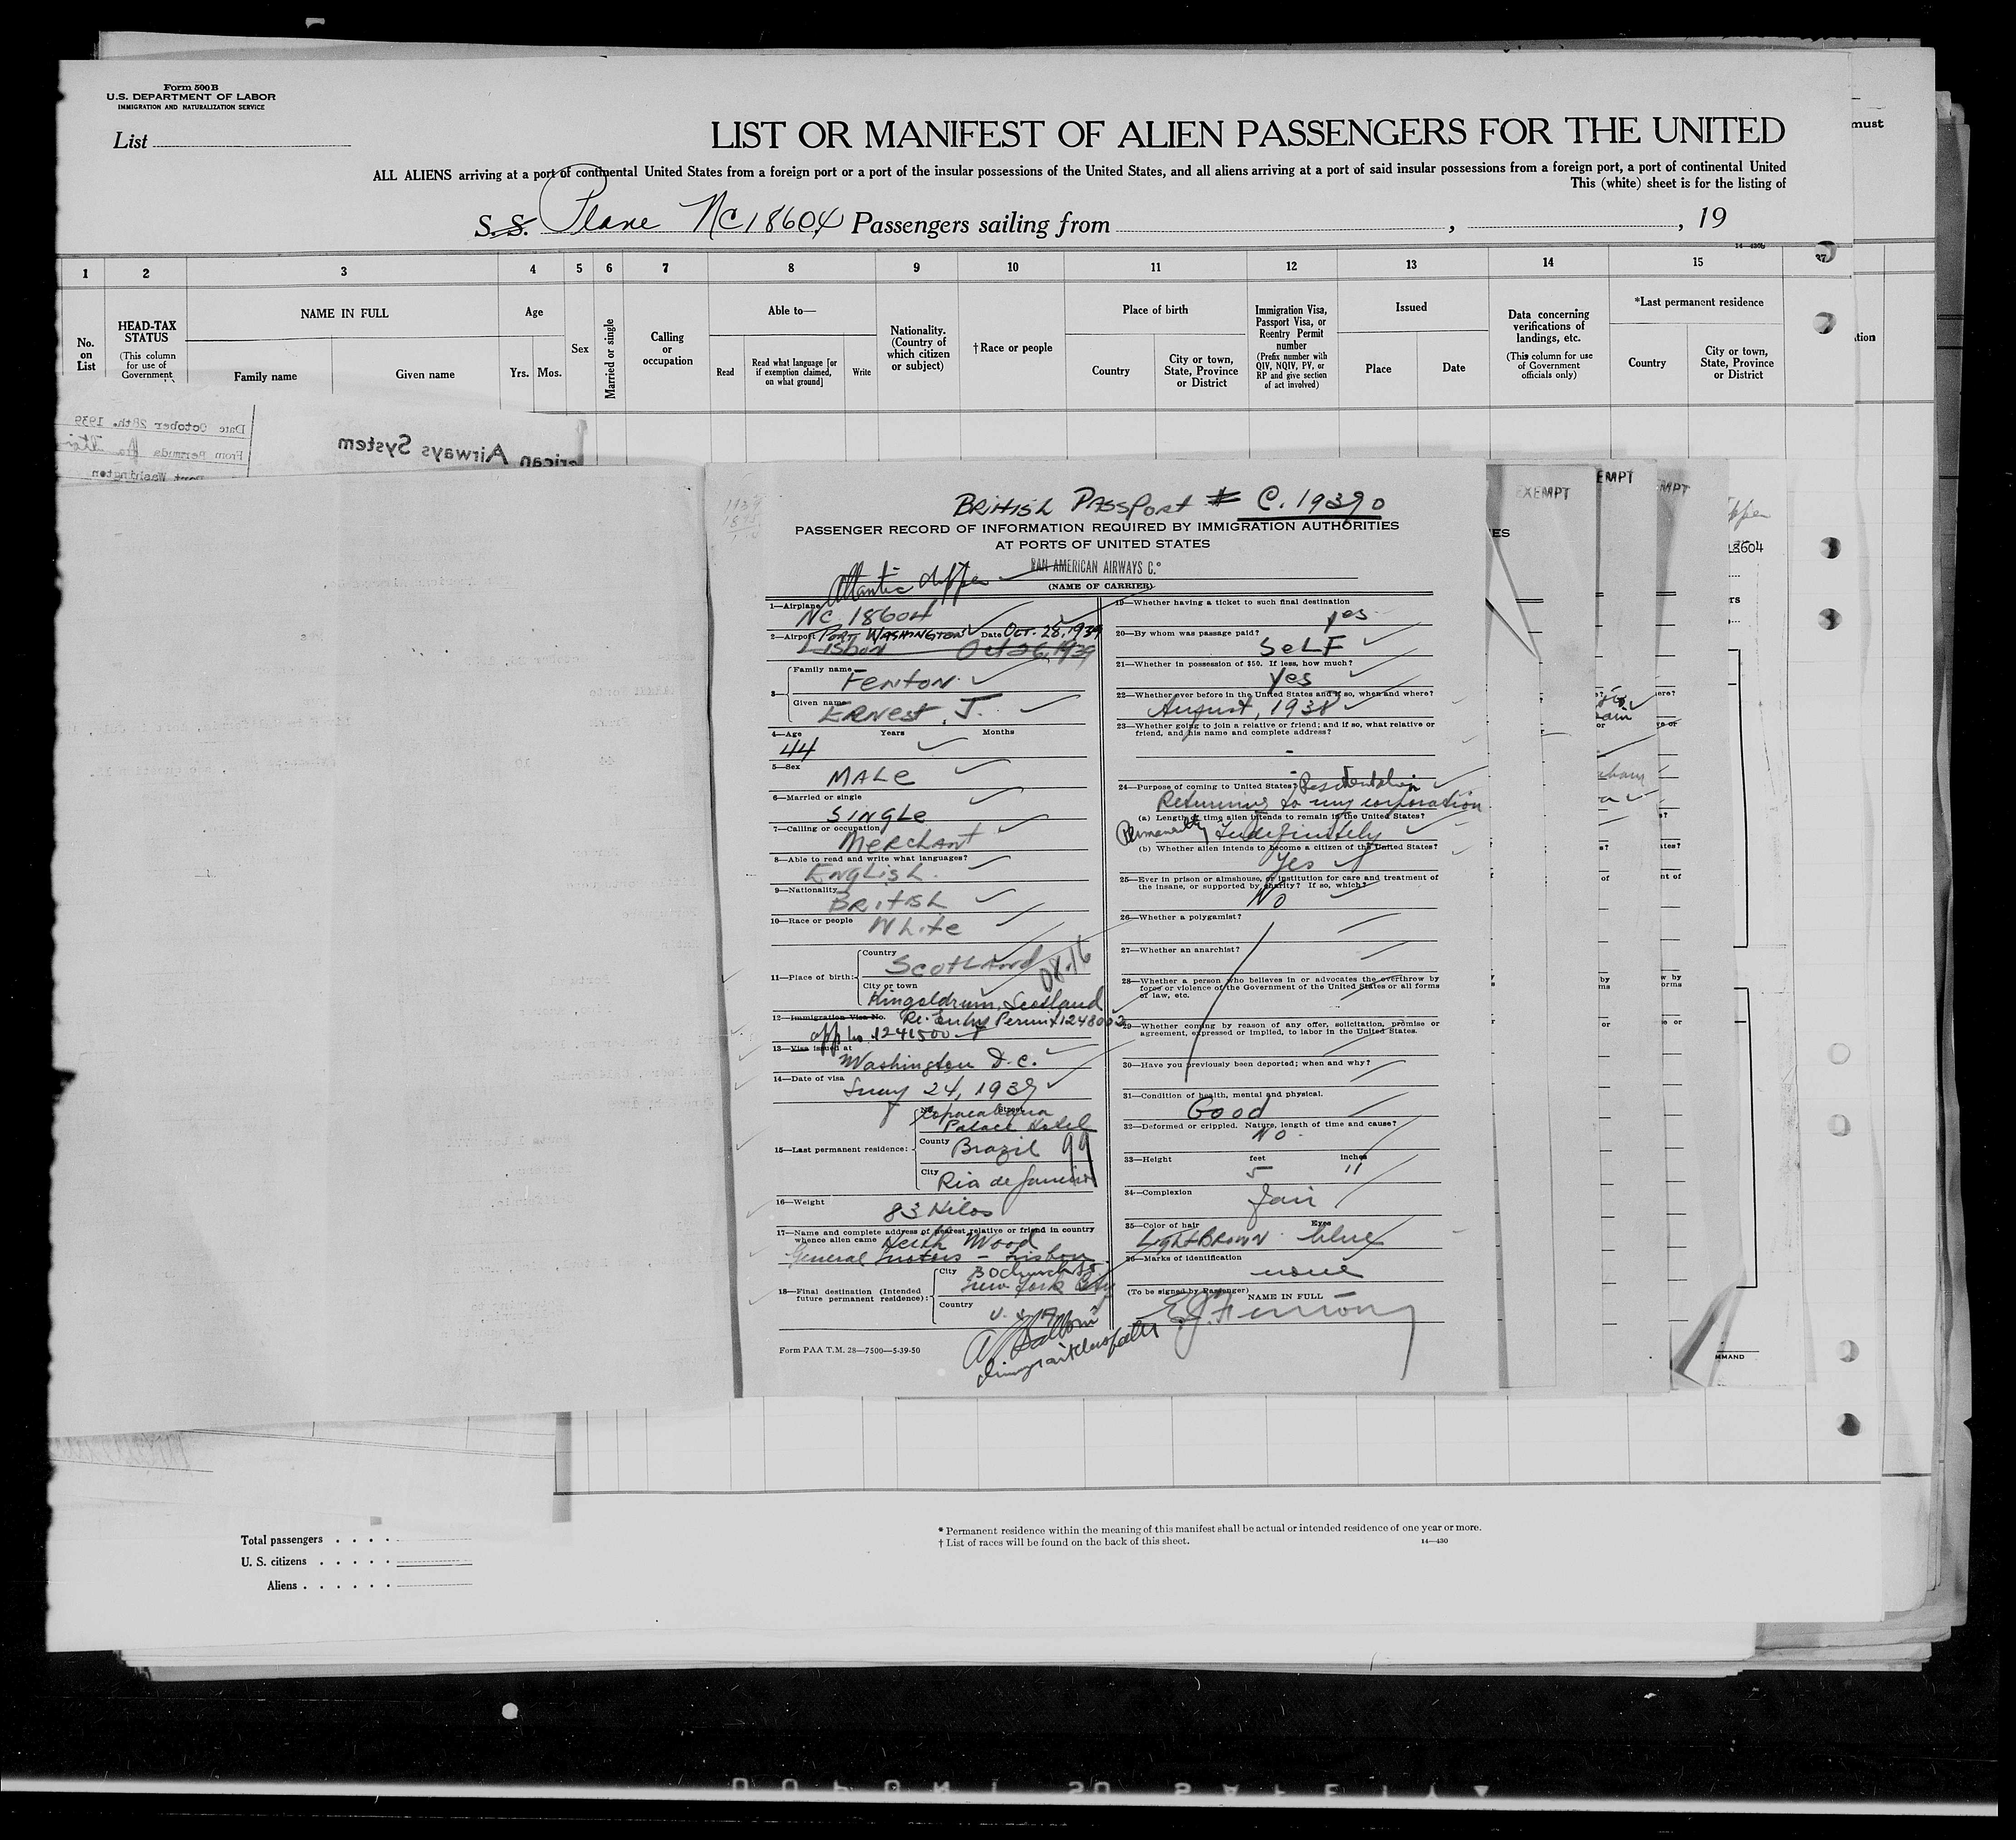 Form 500B
U.S. DEPARTMENT OF LABOR
IMMIGRATION AND NATURALIZATION SERVICE
List
LIST OR MANIFEST OF ALIEN PASSENGERS FOR THE UNITED
must
ALL ALIENS arriving at a port of continental United States from a foreign port or a port of the insular possessions of the United States, and all aliens arriving at a port of said insular possessions from a foreign port, a port of continental United
This (white) sheet is for the listing of
S.S. Plane NC18604 Passengers sailing from , , 19
1 2 3 4 5 6 7 8 9 10 11 12 13 14 15
No. on List
HEAD-TAX STATUS
(This column for use of Government
NAME IN FULL
Family name
Given name
Age
Yrs. Mos.
Sex
Married or single
Calling or occupation
Able to—
Read
Read what language [or if exemption claimed, on what ground]
Write
Nationality. (Country of which citizen or subject)
†Race or people
Place of birth
Country
City or town, State, Province or District
Immigration Visa, Passport Visa, or Reentry Permit number
(Prefix number with QIV, NQIV, PV, or RP and give section of act involved)
Issued
Place
Date
Data concerning verifications of landings, etc.
(This column for use of Government officials only)
*Last permanent residence
Country
City or town, State, Province or District
Date October 28th. 1939
From Bermuda
Port Washington
Airways System
BRITISH PASSPORT # C. 19390
PASSENGER RECORD OF INFORMATION REQUIRED BY IMMIGRATION AUTHORITIES
AT PORTS OF UNITED STATES
PAN AMERICAN AIRWAYS Co
Atlantic Clipper
(NAME OF CARRIER)
1—Airplane NC 18604
2—Airport PORT WASHINGTON Date OCT. 28, 1939
Lisbon Oct 26, 1939
3— Family name FENTON
Given name ERNEST J.
4—Age Years Months
44
5—Sex MALE
6—Married or single
SINGLE
7—Calling or occupation
MERCHANT
8—Able to read and write what languages?
ENGLISH
9—Nationality
BRITISH
10—Race or people White
11—Place of birth: Country
SCOTLAND
City or town
Kingoldrum, Scotland
12—Immigration Visa No. Re-Entry Permit 1248002
13—Visa issued at
Washington D.C.
14—Date of visa
24, 1939
15—Last permanent residence: No. Street
Copacabana Palace Hotel
County Brazil 99
City Rio de Janeiro
16—Weight
83 Kilos
17—Name and complete address of nearest relative or friend in country whence alien came Keith Wood
General Motors - Lisbon
18—Final destination (Intended future permanent residence): City 30 Church St.
New York City
Country
U.S.A.
Form PAA T.M. 28—7500—5-39-50
19—Whether having a ticket to such final destination
yes
20—By whom was passage paid?
SELF
21—Whether in possession of $50. If less, how much?
Yes
22—Whether ever before in the United States and if so, when and where?
August, 1938
23—Whether going to join a relative or friend; and if so, what relative or friend, and his name and complete address?
-
24—Purpose of coming to United States?
Returning to my corporation
(a) Length of time alien intends to remain in the United States?
Permanently Indefinitely
(b) Whether alien intends to become a citizen of the United States?
Yes
25—Ever in prison or almshouse, or institution for care and treatment of the insane, or supported by charity? If so, which?
No
26—Whether a polygamist?
27—Whether an anarchist?
28—Whether a person who believes in or advocates the overthrow by force or violence of the Government of the United States or all forms of law, etc.
29—Whether coming by reason of any offer, solicitation, promise or agreement, expressed or implied, to labor in the United States.
30—Have you previously been deported; when and why?
31—Condition of health, mental and physical.
Good
32—Deformed or crippled. Nature, length of time and cause?
No
33—Height feet inches
5 11
34—Complexion
fair
35—Color of hair Eyes
LIGHT BROWN blue
36—Marks of identification
none
(To be signed by Passenger) NAME IN FULL
E.J. Fenton
EXEMPT
EMPT
MPT
18604
MMAND
Total passengers
U. S. citizens
Aliens
* Permanent residence within the meaning of this manifest shall be actual or intended residence of one year or more.
† List of races will be found on the back of this sheet.
14—430